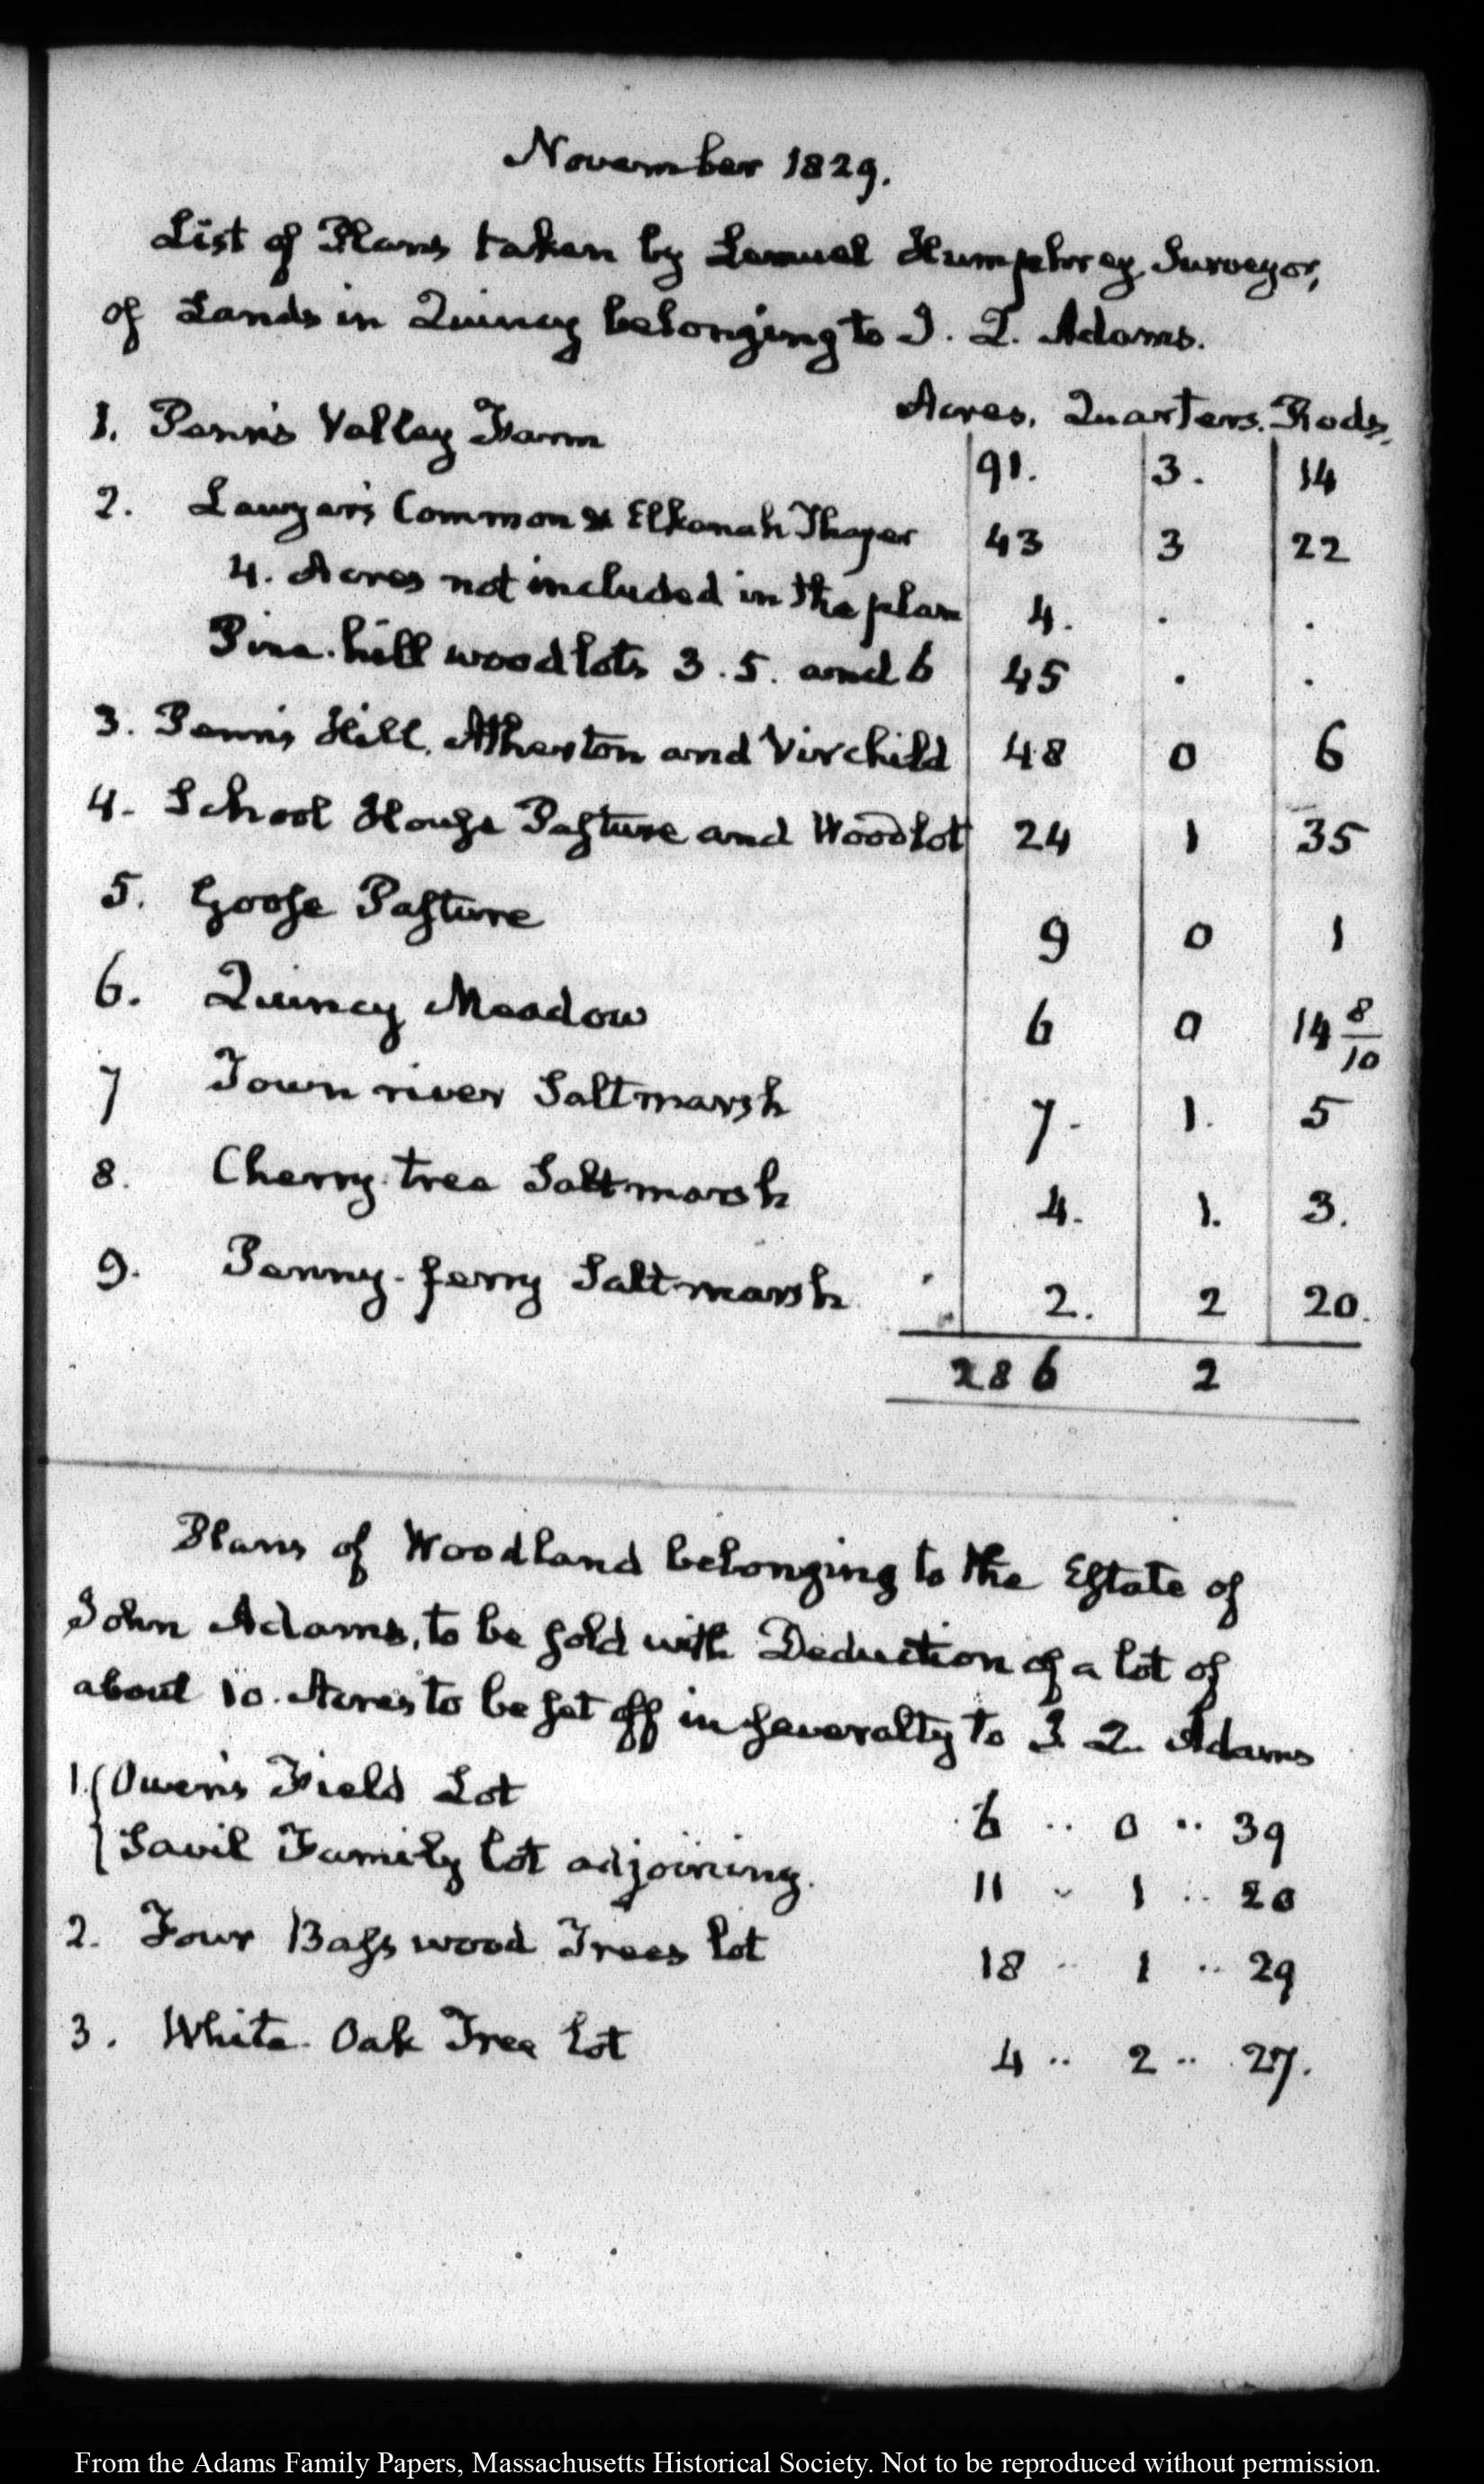 November 1829.
List of Plans taken by Lemuel Humphrey Surveyor,
of Lands in Quincy belonging to J. Q. Adams.
Acres. Quarters. Rods.
1. Penn's Valley Farm 91. 3. 14
2. Lawyer's Common & Elkanah Thayer 43 3 22
4. Acres not included in the plan 4. . .
Pine hill wood lots 3. 5. and 6 45 . .
3. Penn's Hill, Atherton and Virchild 48 0 6
4. School House Pasture and Woodlot 24 1 35
5. Goose Pasture 9 0 1
6. Quincy Meadow 6 0 14 8/10
7 Town river Saltmarsh 7. 1. 5
8. Cherry tree Saltmarsh 4. 1. 3.
9. Penny-ferry Saltmarsh 2. 2 20.
286 2
Plans of Woodland belonging to the Estate of
John Adams, to be sold with Deduction of a lot of
about 10. Acres to be set off in severalty to J. Q. Adams
1. Owen's Field Lot 6 .. 0 .. 39
Savil Family lot adjoining. 11 .. 1 .. 20
2. Four Bass wood Trees lot 18 .. 1 .. 29
3. White Oak Tree lot 4 .. 2 .. 27.
From the Adams Family Papers, Massachusetts Historical Society. Not to be reproduced without permission.